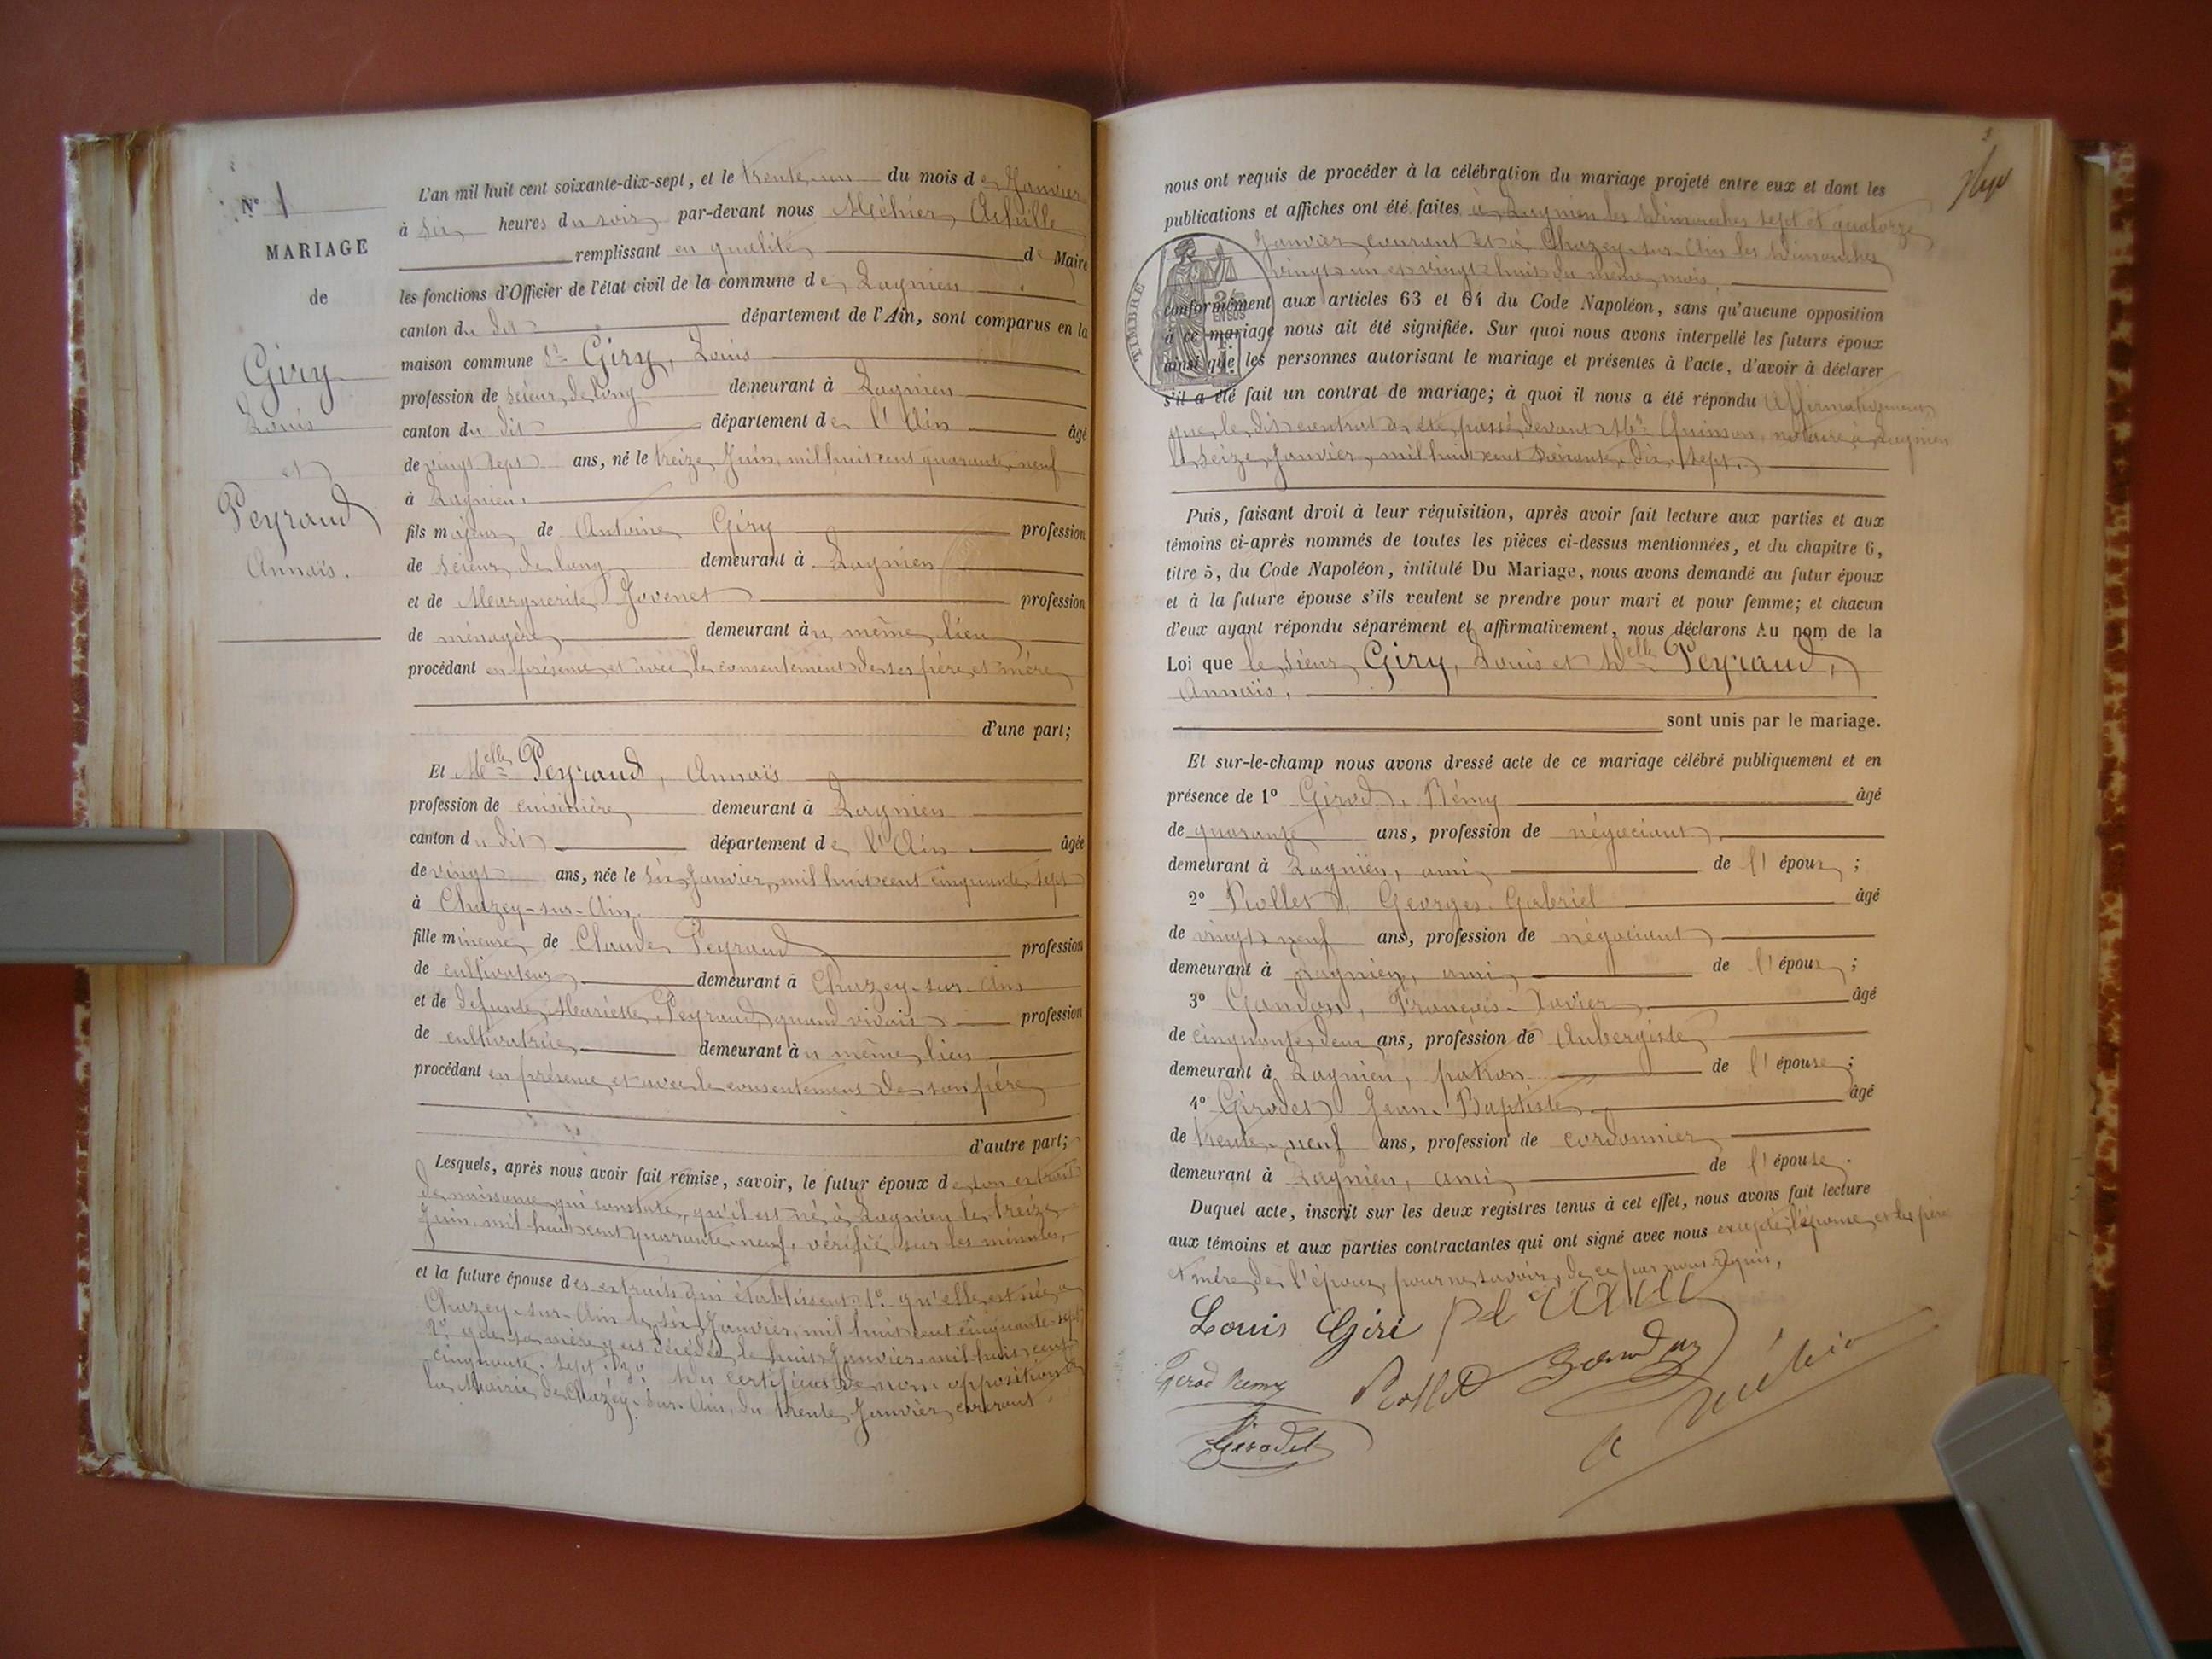 N° 1
MARIAGE
de
Giry
Louis
et
Peyraud
Annaïs.
L'an mil huit cent soixante-dix-sept, et le trente-un du mois de Janvier
à six heures du soir par-devant nous Méhier, Achille
remplissant en qualité de Maire
les fonctions d'Officier de l'état civil de la commune de Lagnieu
canton du dit département de l'Ain, sont comparus en la
maison commune Sr Giry, Louis
profession de scieur de long demeurant à Lagnieu
canton du dit département de l'Ain âgé
de vingt sept ans, né le treize Juin, mil huit cent quarante-neuf
à Lagnieu.
fils majeur de Antoine Giry profession
de scieur de long demeurant à Lagnieu
et de Marguerite Jovenet profession
de ménagère demeurant au même lieu
procédant en présence et avec le consentement de ses père et mère
d'une part;
Et Melle Peyraud, Annaïs
profession de cuisinière demeurant à Lagnieu
canton du dit département de l'Ain âgée
de vingt ans, née le six Janvier, mil huit cent cinquante-sept
à Chazey-sur-Ain.
fille mineure de Claude Peyraud profession
de cultivateur demeurant à Chazey-sur-Ain
et de défunte Mariette Peyraud, quand vivait profession
de cultivatrice demeurant au même lieu
procédant en présence et avec le consentement de son père
d'autre part;
Lesquels, après nous avoir fait remise, savoir, le futur époux de son extrait
de naissance qui constate, qu'il est né à Lagnieu le treize
Juin, mil huit cent quarante-neuf, vérifié sur les minutes,
et la future épouse des extraits qui établissent: 1° qu'elle est née à
Chazey-sur-Ain le six Janvier, mil huit cent cinquante-sept
2° que sa mère y est décédée le huit Janvier mil huit cent
cinquante-sept. 3° du certificat de non opposition de
la Mairie de Chazey-sur-Ain, du trente Janvier courant.
nous ont requis de procéder à la célébration du mariage projeté entre eux et dont les
publications et affiches ont été faites à Lagnieu les dimanches sept et quatorze
Janvier courant et à Chazey-sur-Ain les dimanches
vingt-un et vingt-huit du même mois,
TIMBRE
conformément aux articles 63 et 64 du Code Napoléon, sans qu'aucune opposition
à ce mariage nous ait été signifiée. Sur quoi nous avons interpellé les futurs époux
ainsi que les personnes autorisant le mariage et présentes à l'acte, d'avoir à déclarer
s'il a été fait un contrat de mariage; à quoi il nous a été répondu Affirmativement
que le dit contrat a été passé devant Mr Quinson, notaire à Lagnieu
le seize Janvier, mil huit cent soixante-dix-sept.
Puis, faisant droit à leur réquisition, après avoir fait lecture aux parties et aux
témoins ci-après nommés de toutes les pièces ci-dessus mentionnées, et du chapitre 6,
titre 5, du Code Napoléon, intitulé Du Mariage, nous avons demandé au futur époux
et à la future épouse s'ils veulent se prendre pour mari et pour femme; et chacun
d'eux ayant répondu séparément et affirmativement, nous déclarons Au nom de la
Loi que le sieur Giry, Louis et Delle Peyraud,
Annaïs,
sont unis par le mariage.
Et sur-le-champ nous avons dressé acte de ce mariage célébré publiquement et en
présence de 1° Girod, Rémy âgé
de quarante ans, profession de négociant,
demeurant à Lagnieu, ami de l'époux;
2° Rollet, Georges Gabriel âgé
de vingt-neuf ans, profession de négociant
demeurant à Lagnieu, ami de l'époux;
3° Gandon, François-Xavier âgé
de cinquante deux ans, profession de Aubergiste
demeurant à Lagnieu, patron de l'épouse;
4° Girodet Jean-Baptiste âgé
de trente-neuf ans, profession de cordonnier
demeurant à Lagnieu, ami de l'épouse.
Duquel acte, inscrit sur les deux registres tenus à cet effet, nous avons fait lecture
aux témoins et aux parties contractantes qui ont signé avec nous excepté l'épouse et les père
et mère de l'époux, pour ne savoir, de ce par nous requis,
Louis Giri
Gerod Remy
Rollet
Girodet